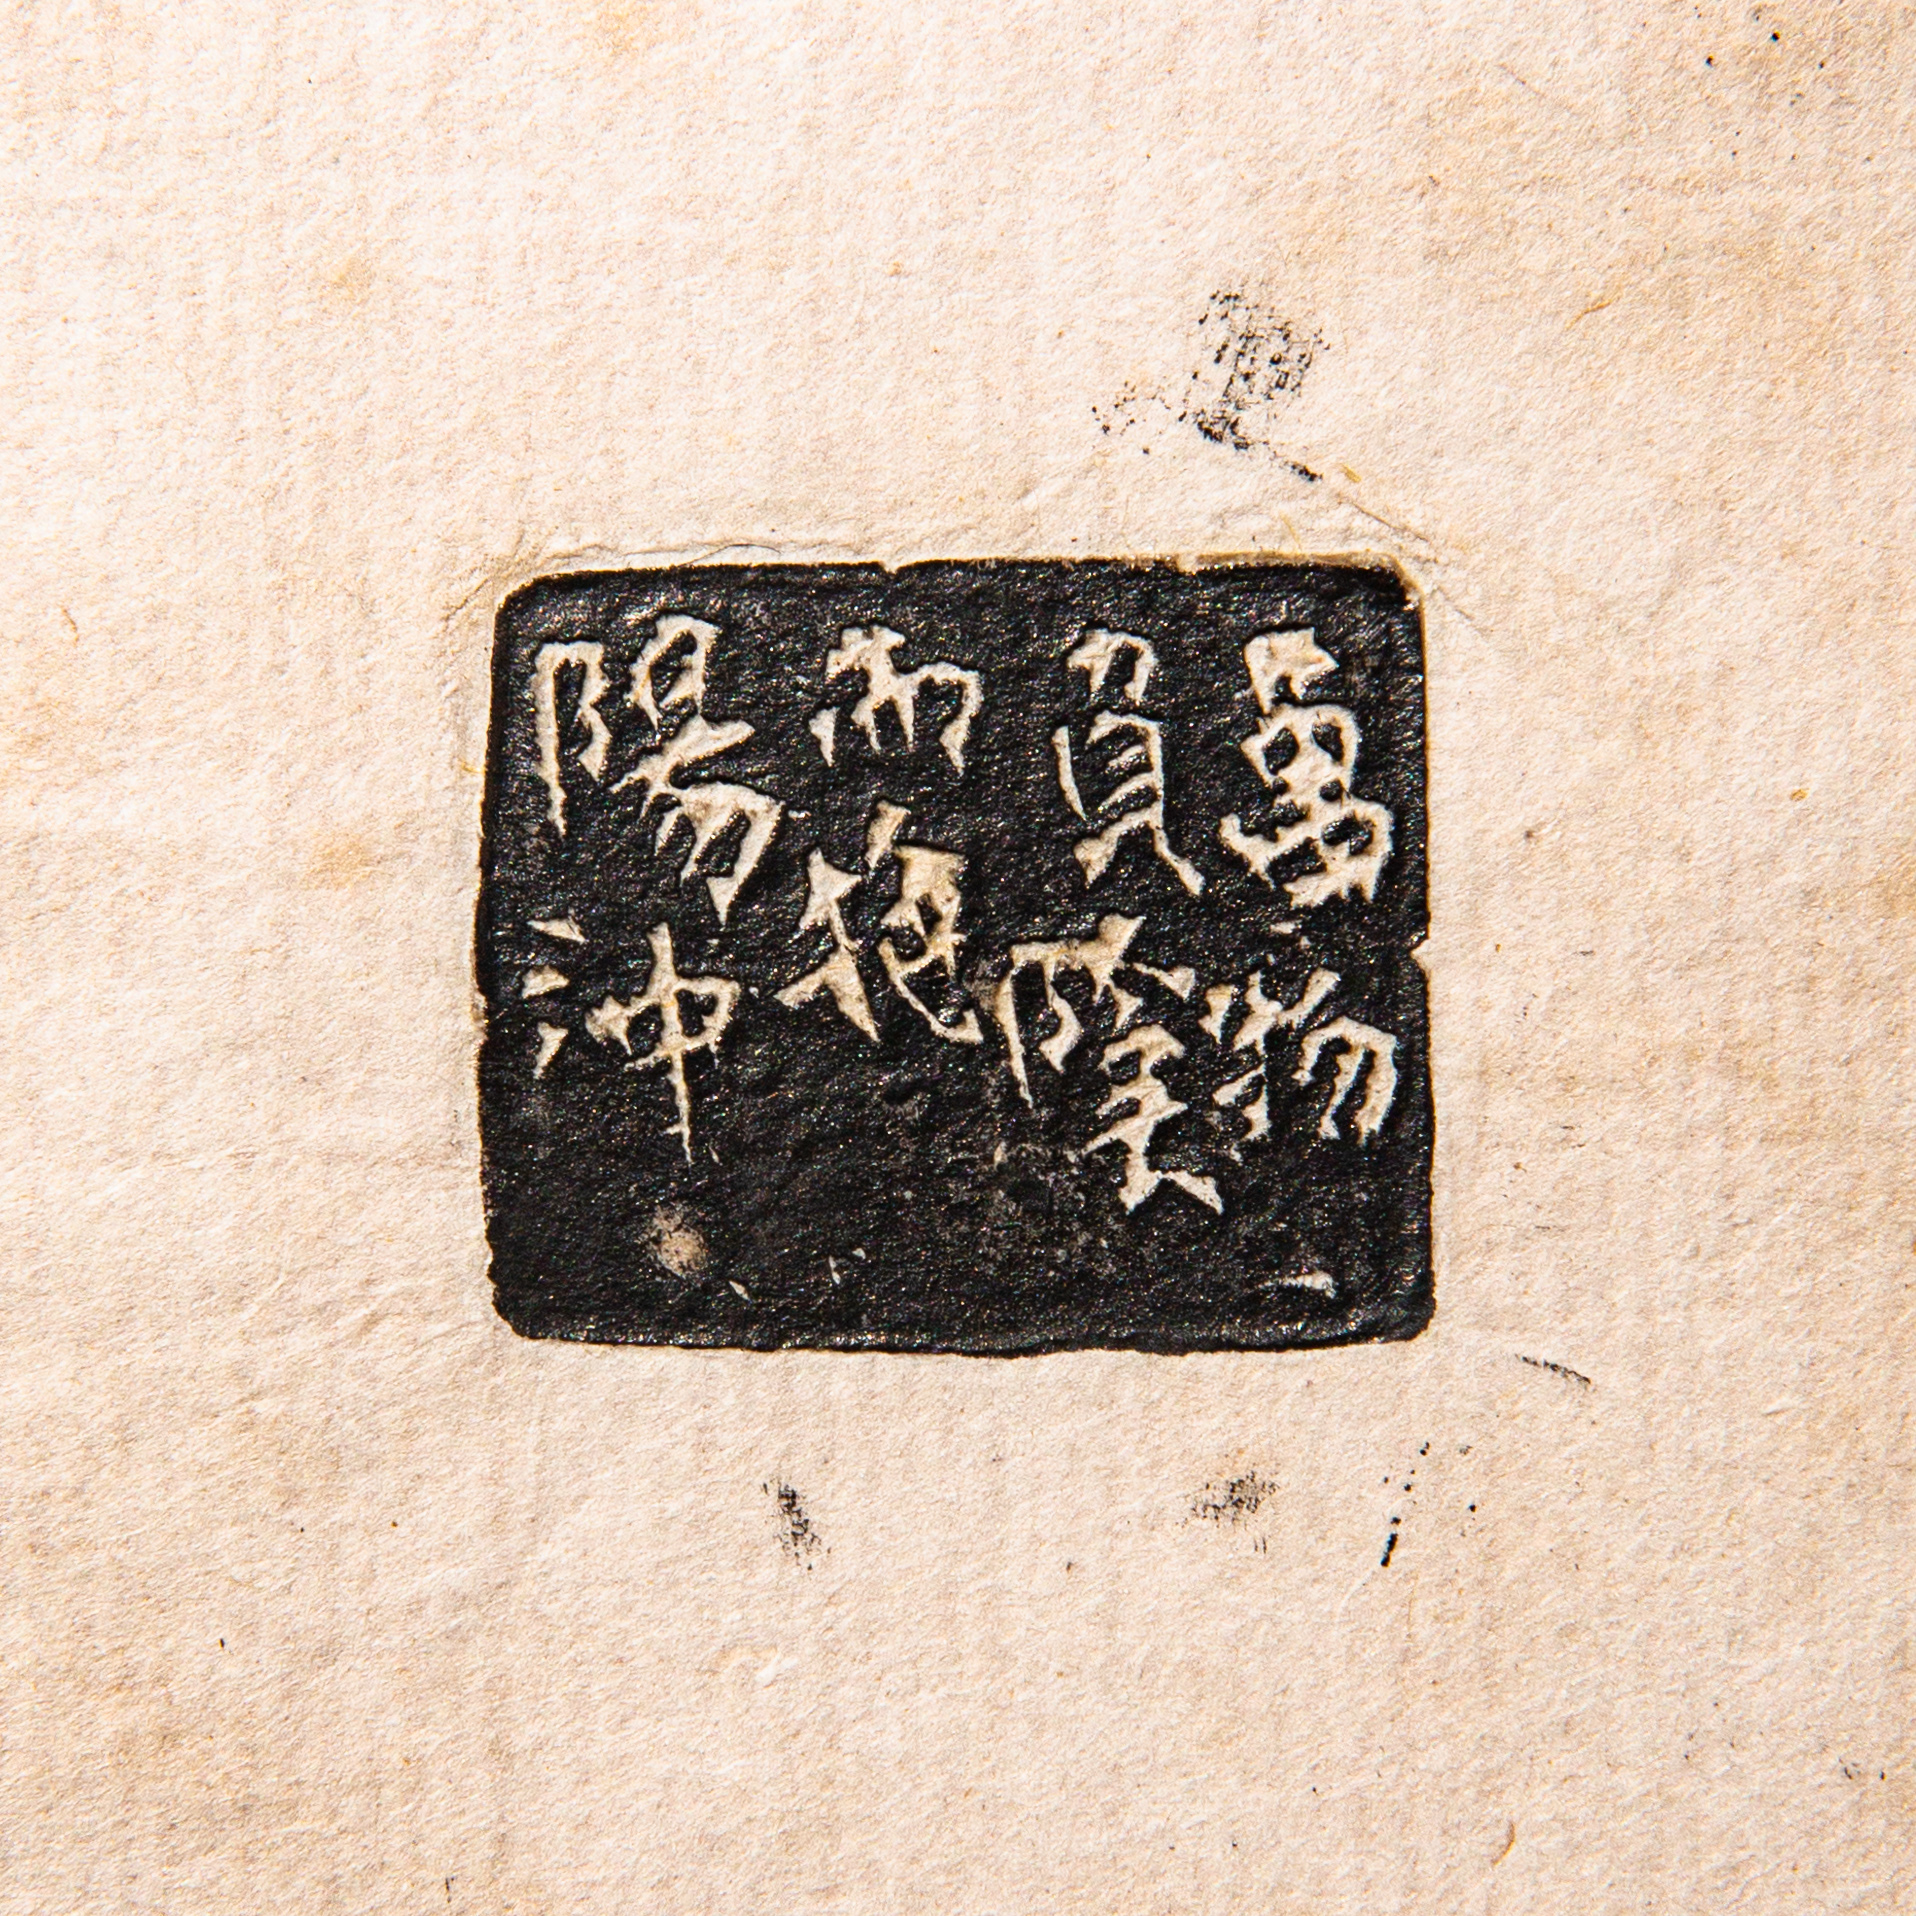 萬物
負陰
而抱
陽沖